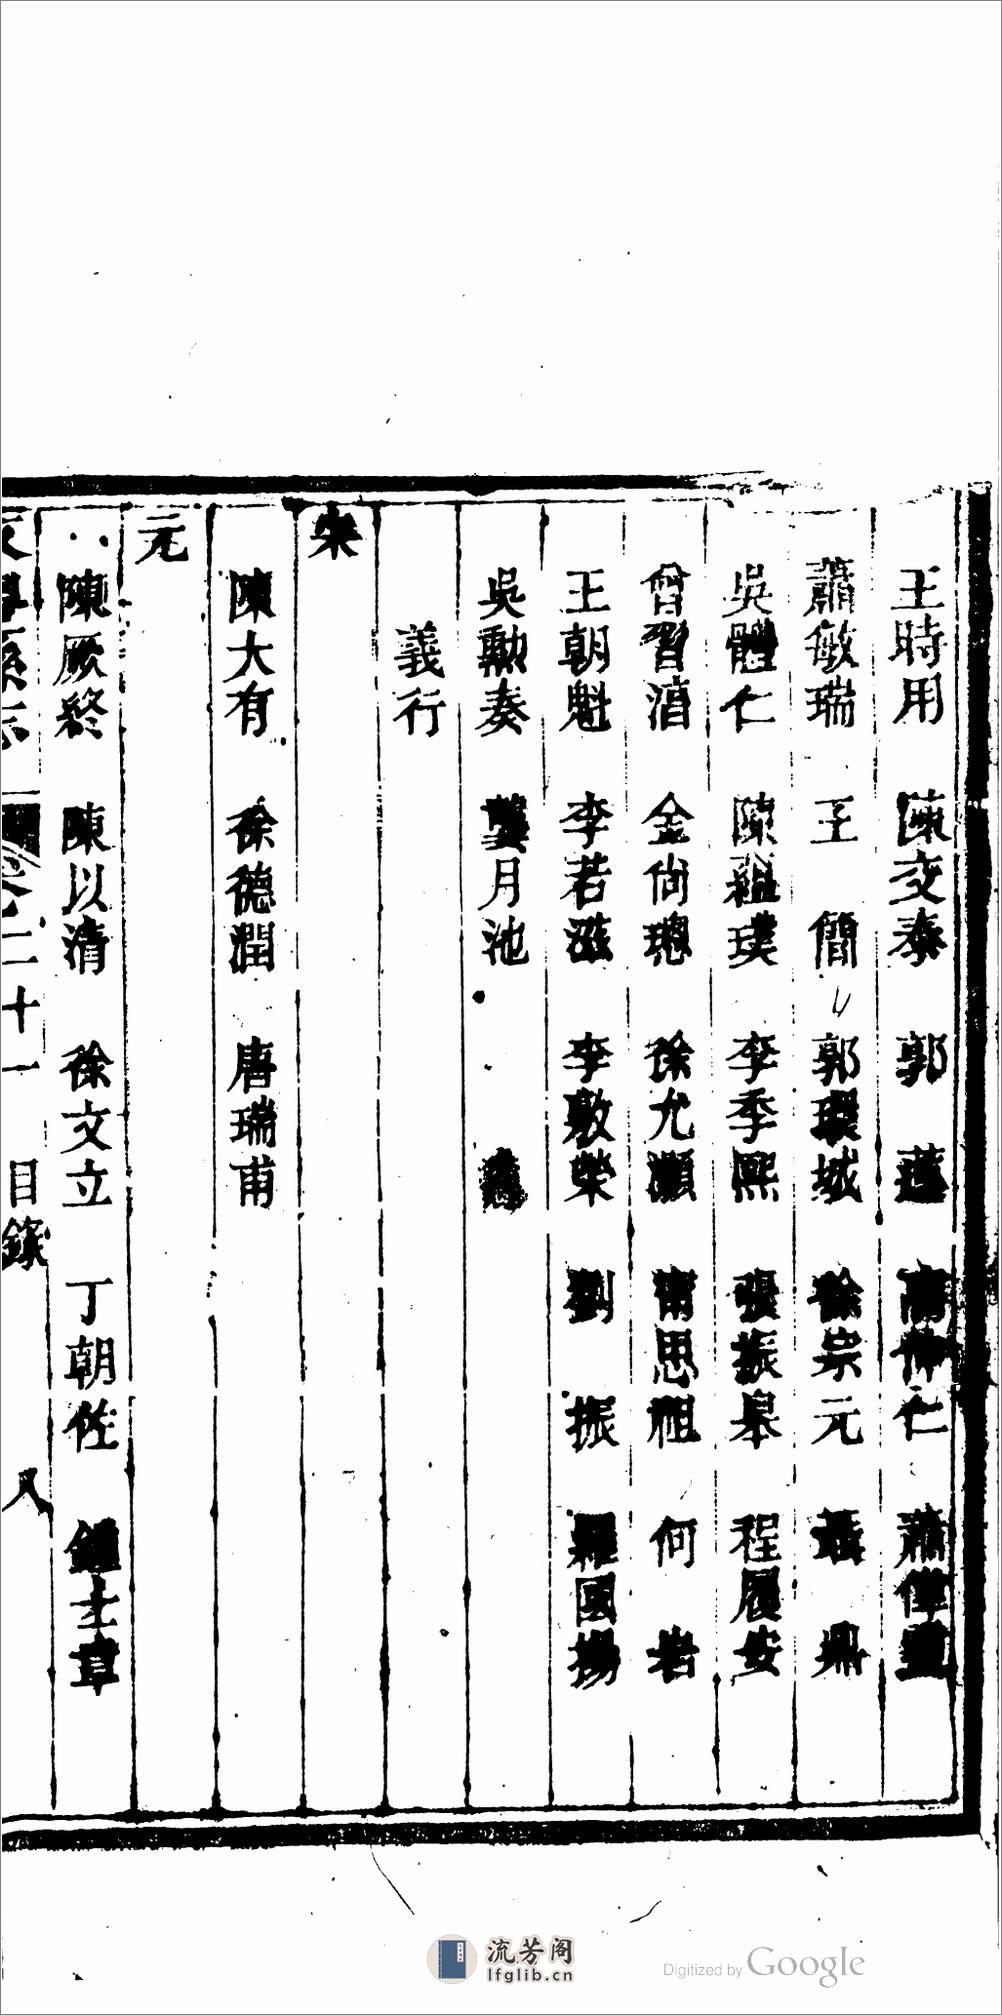 王時用　陳交泰　郭　蓮　高仲仁　蕭偉
蕭敏瑞　王　簡　郭環城　徐崇元　聶　鼎
吳體仁　陳蘊璞　李季熙　張振皋　程履安
曾習湞　金尙璁　徐允灝　甯思祖　何　岩
王朝魁　李若滋　李敷榮　劉　振　羅國揚
吳勳奏　龔月池
義行
宋
陳大有　徐德潤　唐瑞甫
元
陳厥終　陳以清　徐文立　丁朝佐　鍾士章
縣志　卷二十一　目錄　八
流芳阁
lfglib.cn
Digitized by Google